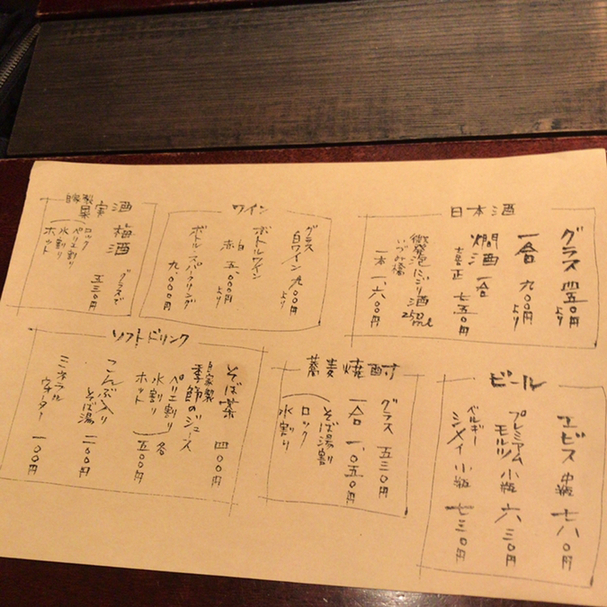 日本酒
グラス 四五〇円より
一合 九〇〇円より
燗酒 一合
七五〇円
微発泡にごり酒
250ml
一本 一、六〇〇円
ワイン
グラス
白ワイン 九〇〇円より
ボトルワイン
白
赤 五、〇〇〇円より
ボトルスパークリング
九、〇〇〇円
自家製
果実酒
梅酒
グラスで
五三〇円
ロック
ペリエ割り
水割り
ホット
ビール
ヱビス 中瓶 七八〇円
プレミアム
モルツ 小瓶 六三〇円
ベルギー
シメイ 小瓶 七三〇円
蕎麦焼酎
グラス 五三〇円
一合 一、〇五〇円
そば湯割り
ロック
水割り
ソフトドリンク
そば茶 四〇〇円
自家製
季節のジュース
ペリエ割り
水割り
ホット
各
五〇〇円
こんぶ入り
そば湯
二〇〇円
ミネラル
ウォーター 一〇〇円